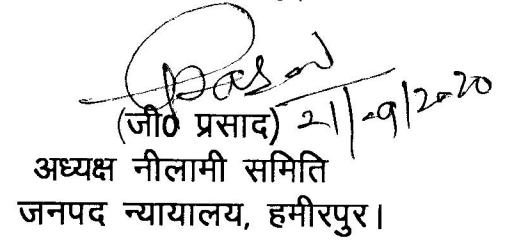 (जी0 प्रसाद) 21/09/2020
अध्यक्ष नीलामी समिति
जनपद न्यायालय, हमीरपुर।